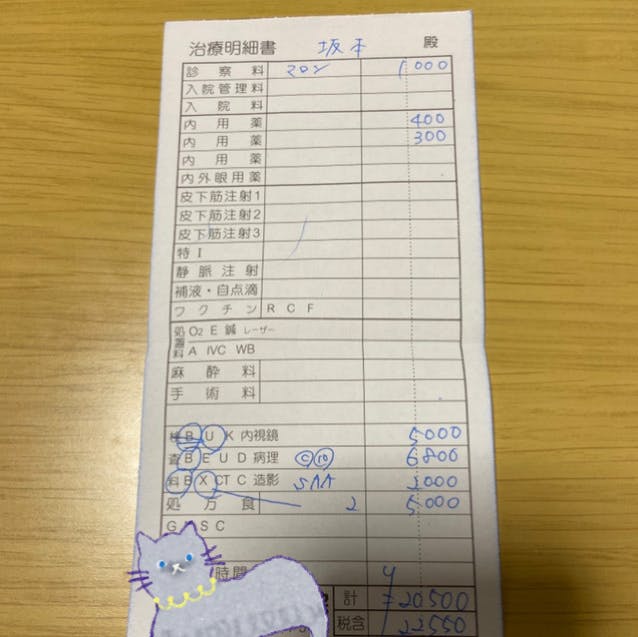 治療明細書 坂本 殿
診察料 マロン 1000
入院管理料
入院料
内用薬 400
内用薬 300
内用薬
内外眼用薬
皮下筋注射1
皮下筋注射2
皮下筋注射3
特I
静脈注射
補液・自点滴
ワクチン R C F
処 O2 E 鍼 レーザー
置
料 A IVC WB
麻酔料
手術料
検 B U K 内視鏡 5000
査 B E U D 病理 C 10 6800
料 B X CT C 造影 SAA 2000
処方食 2 5000
時間
計 20500
税含 22550